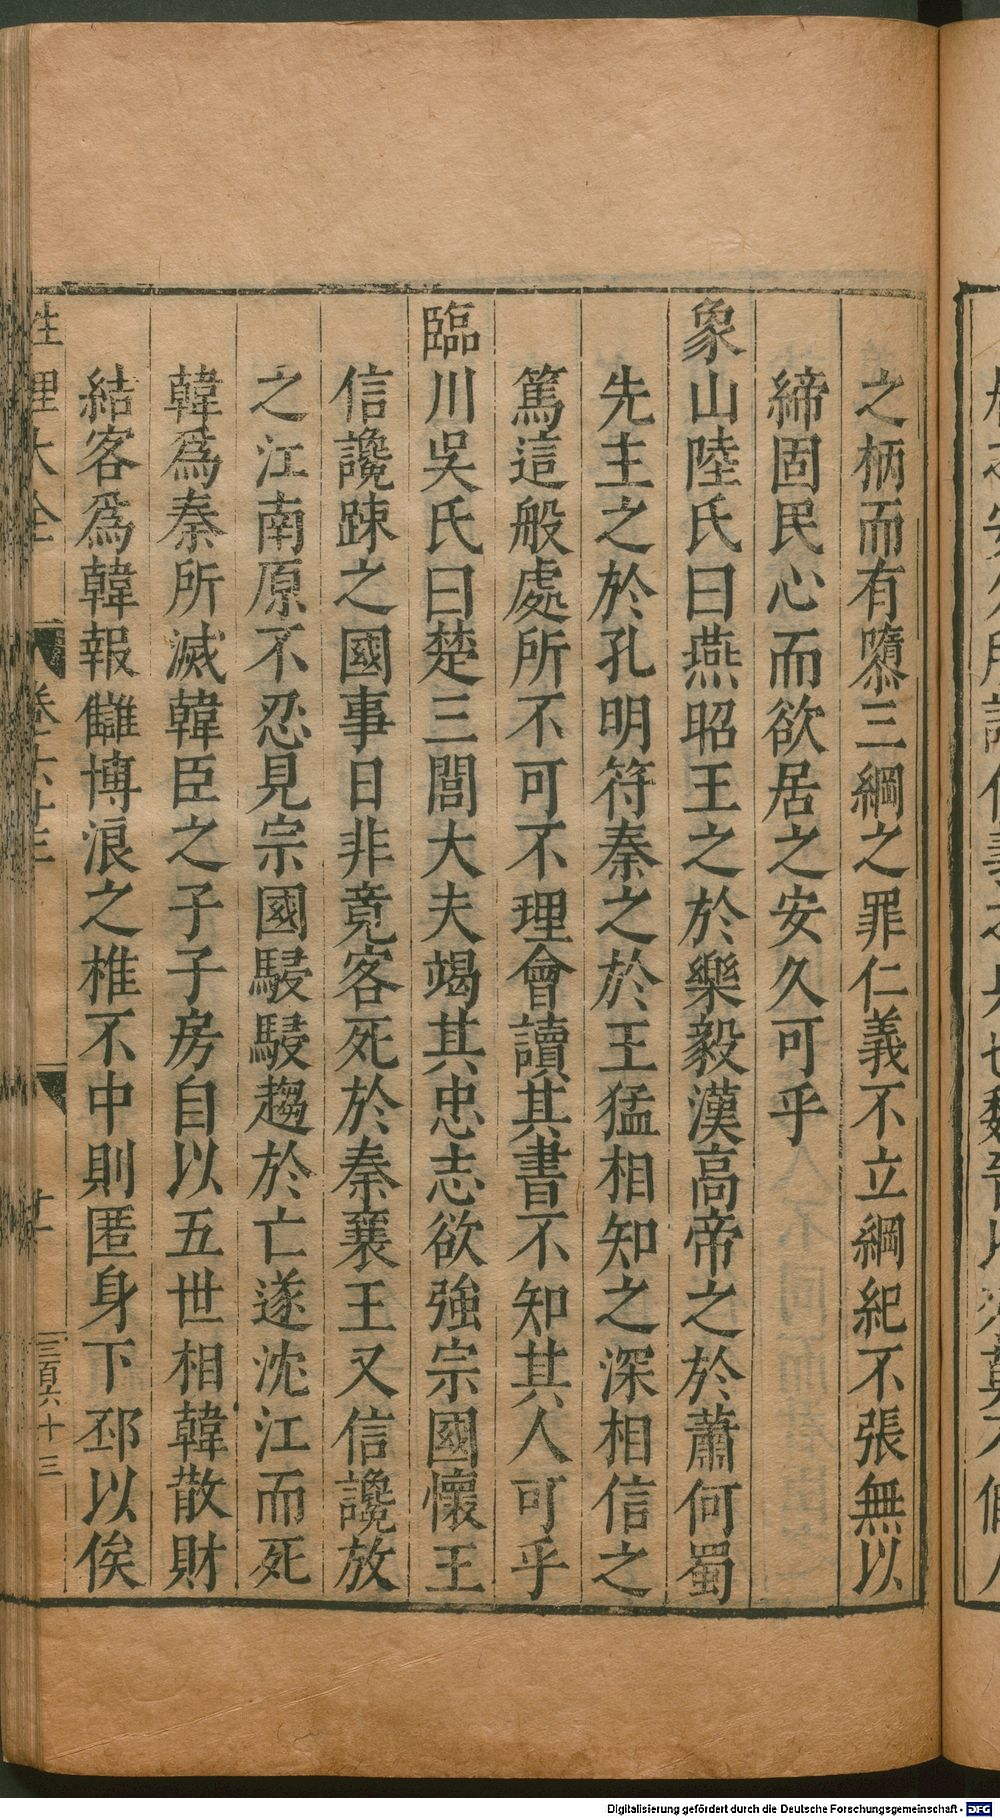 之柄而有隳三綱之罪仁義不立綱紀不張無以
締固民心而欲居之安久可乎
象山陸氏曰燕昭王之於樂毅漢高帝之於蕭何蜀
先主之於孔明符秦之於王猛相知之深相信之
篤這般處所不可不理會讀其書不知其人可乎
臨川吳氏曰楚三閭大夫竭其忠志欲強宗國懷王
信讒踈之國事日非竟客死於秦襄王又信讒放
之江南原不忍見宗國駸駸趨於亡遂沈江而死
韓爲秦所滅韓臣之子子房自以五世相韓散財
結客爲韓報讎博浪之椎不中則匿身下邳以俟
性理大全
卷六十三
廿
三百六十三
Digitalisierung gefördert durch die Deutsche Forschungsgemeinschaft - DFG